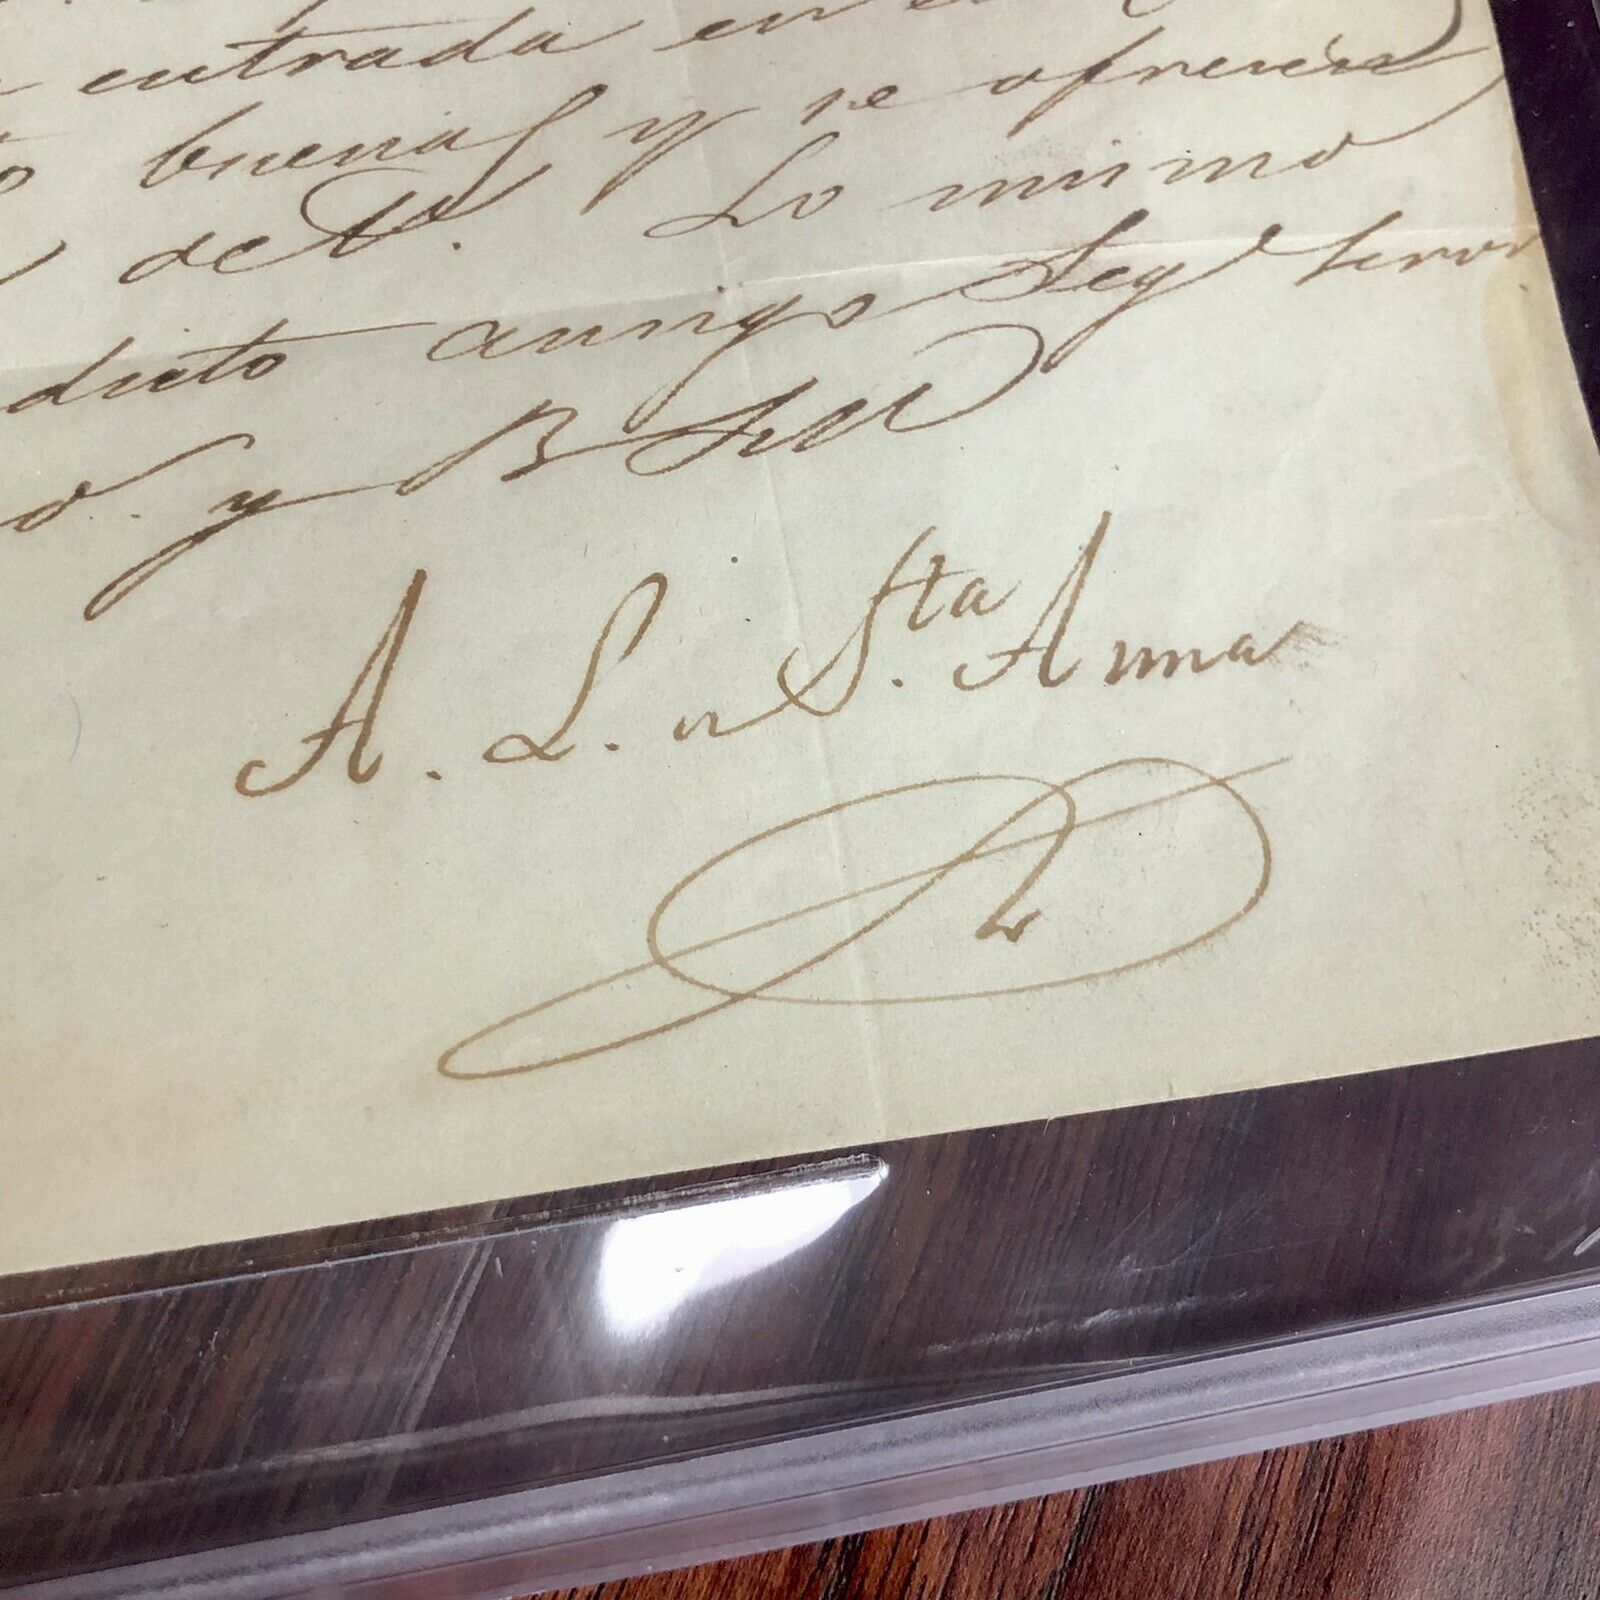 entrada en el
buenas y se ofrecen
de V. Lo mismo
dicto amigo Seg.º servor
y B S M
A. L. de S.ta Anna